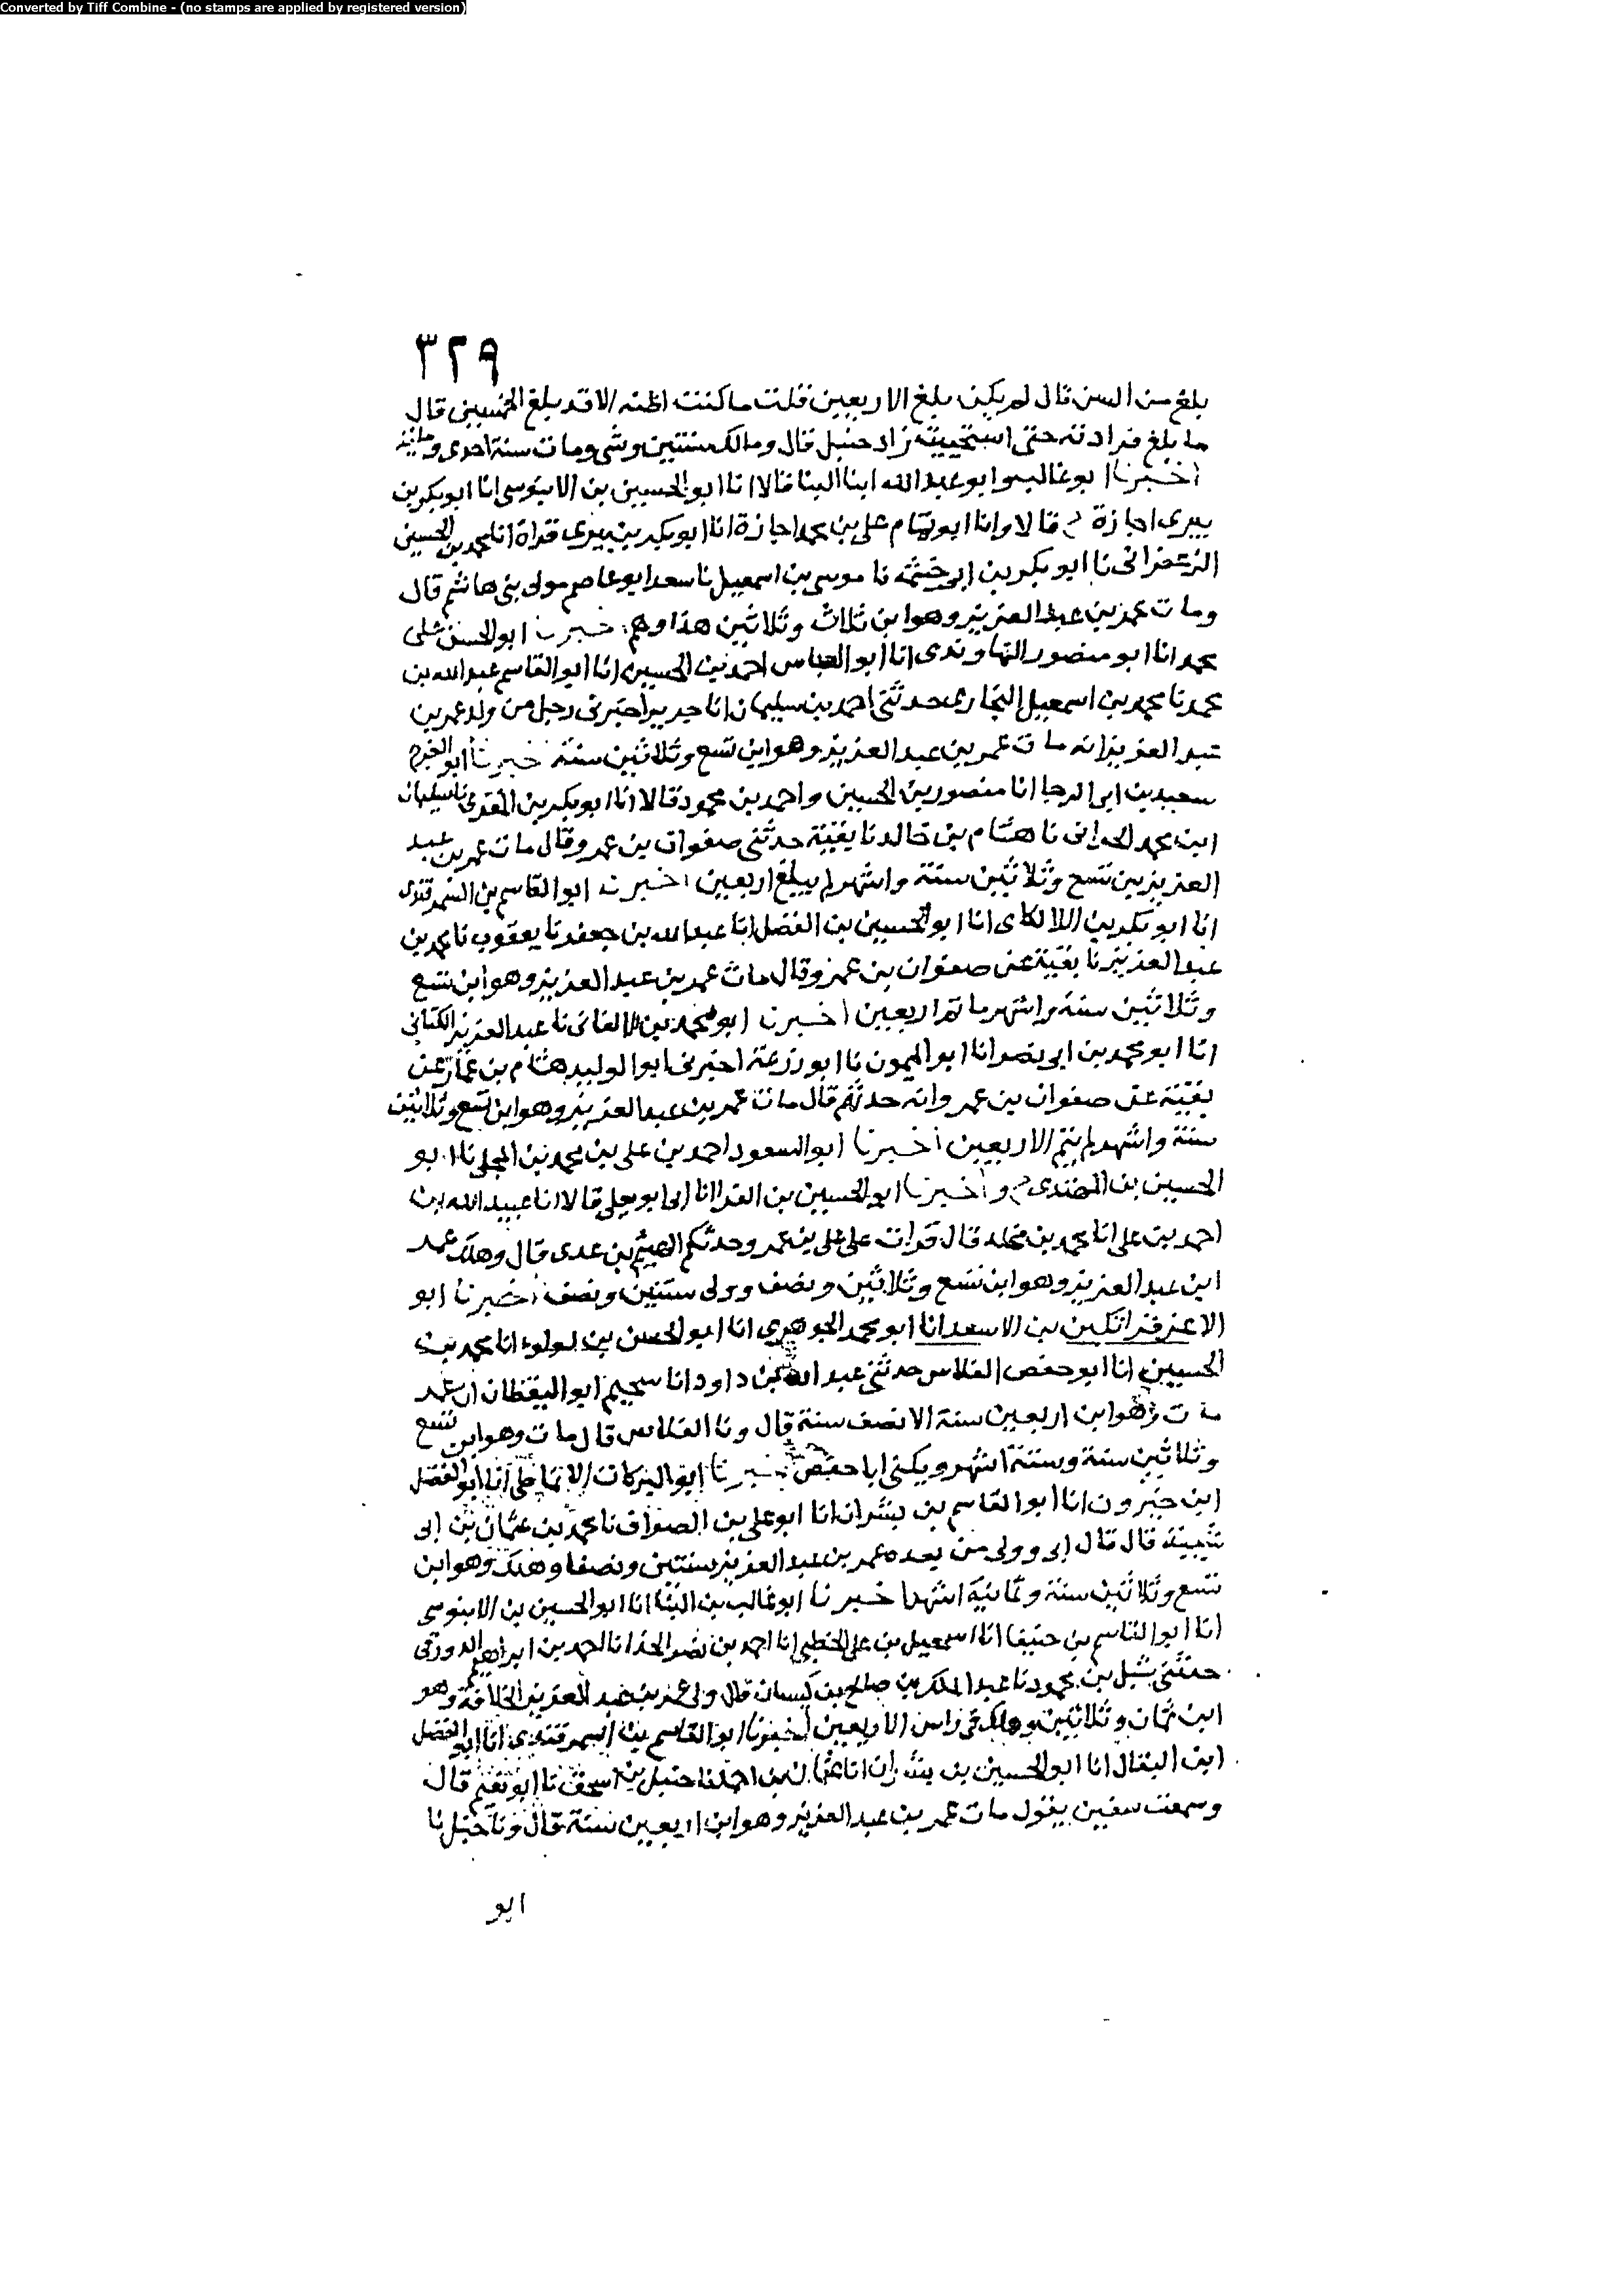 Converted by Tiff Combine - (no stamps are applied by registered version)
٣٢٩
بلغ من السن قال لم يكن بلغ الاربعين فقلت ما كنت اظنه الا قد بلغ الخمسين قال
ما بلغ فرادته حتى استحييته زاد حنبل قال وملك سنتين وشى ومات سنة احدى ومائة
اخبرنا ابو غالب وابو عبد الله ابنا البنا قالا انا ابو الحسين بن الابنوسى انا ابو بكر بن
بيرى اجازة ح قالا وانا ابو تمام على بن محمد اجازة انا ابو بكر بن بيرى قراة انا محمد بن الحسين
الزعفرانى نا ابو بكر بن ابى خيثمة نا موسى بن اسمعيل نا سعد ابو عاصم مولى بنى هاشم قال
ومات عمر بن عبد العزيز وهو ابن ثلاث وثلاثين هذا وهم اخبرنا ابو الحسن على
محمد انا ابو منصور النهاوندى انا ابو العباس احمد بن الحسين انا ابو القاسم عبد الله بن
محمد نا محمد بن اسمعيل البخارى حدثنى احمد بن سليمان انا جرير اخبرنى رجل من ولد عمر بن
عبد العزيز انه مات عمر بن عبد العزيز وهو ابن تسع وثلاثين سنة اخبرنا ابو الفرج
سعيد بن ابى الرجا انا منصور بن الحسين واحمد بن محمود قالا انا ابو بكر بن المقرى نا سليمان
ابن محمد الخزاعى نا هشام بن خالد نا بقية حدثنى صفوان بن عمرو قال مات عمر بن عبد
العزيز بن تسع وثلاثين سنة واشهر لم يبلغ اربعين اخبرنا ابو القاسم بن السمرقندى
انا ابو بكر بن اللالكاى انا ابو الحسين بن الفضل انا عبد الله بن جعفر نا يعقوب نا محمد بن
عبد العزيز نا بقية عن صفوان بن عمرو قال مات عمر بن عبد العزيز وهو ابن تسع
وثلاثين سنة واشهر ما تم اربعين اخبرنا ابو محمد بن الاكفانى نا عبد العزيز الكتانى
انا ابو محمد بن ابى نصر انا ابو الميمون نا ابو زرعة اخبرنى ابو الوليد هشام بن عمار عن
بقية عن صفوان بن عمرو انه حدثهم قال مات عمر بن عبد العزيز وهو ابن تسع وثلاثين
سنة واشهر لم يتم الاربعين اخبرنا ابو السعود احمد بن على بن محمد بن المجلى نا ابو
الحسين بن المهتدى ح واخبرنا ابو الحسين بن الفرا انا ابى ابو يعلى قالا انا عبيد الله بن
احمد بن على انا محمد بن مخلد قال قرات على على بن عمرو حدثكم الهيثم بن عدى قال وهلك عمر
ابن عبد العزيز وهو ابن تسع وثلاثين ونصف وولى سنتين ونصف اخبرنا ابو
الاعز قراتكين بن الاسعد انا ابو محمد الجوهرى انا ابو الحسن بن لولوء انا محمد بن
الحسين انا ابو حفص الفلاس حدثنى عبد الله بن داود انا سحيم ابو اليقظان ان عمر
مات وهو ابن اربعين سنة الا نصف سنة قال ونا الفلاس قال مات وهو ابن تسع
وثلاثين سنة وستة اشهر ويكنى ابا حفص اخبرنا ابو البركات الانماطى انا ابو الفضل
ابن خيرون انا ابو القاسم بن بشران انا ابو على بن الصواف نا محمد بن عثمان بن ابى
شيبة قال قال ابى وولى من بعده عمر بن عبد العزيز سنتين ونصفا وهلك وهو ابن
تسع وثلاثين سنة وثمانية اشهر اخبرنا ابو غالب بن البنا انا ابو الحسين بن الابنوسى
انا ابو القاسم بن حنيفا انا اسمعيل بن على الخطبى انا احمد بن نصر الحذا نا احمد بن ابراهيم الدورقى
حدثنى شبل بن محمود نا عبد الملك بن صالح بن كيسان قال ولى عمر بن عبد العزيز الخلافة وهو
ابن ثمان وثلاثين وهلك فى راس الاربعين اخبرنا ابو القاسم بن السمرقندى انا ابو الفضل
ابن البقال انا ابو الحسين بن بشران انا عثمان بن احمد نا حنبل بن اسحق نا ابو نعيم قال
وسمعت سفين يقول مات عمر بن عبد العزيز وهو ابن اربعين سنة قال ونا حنبل نا
ابو